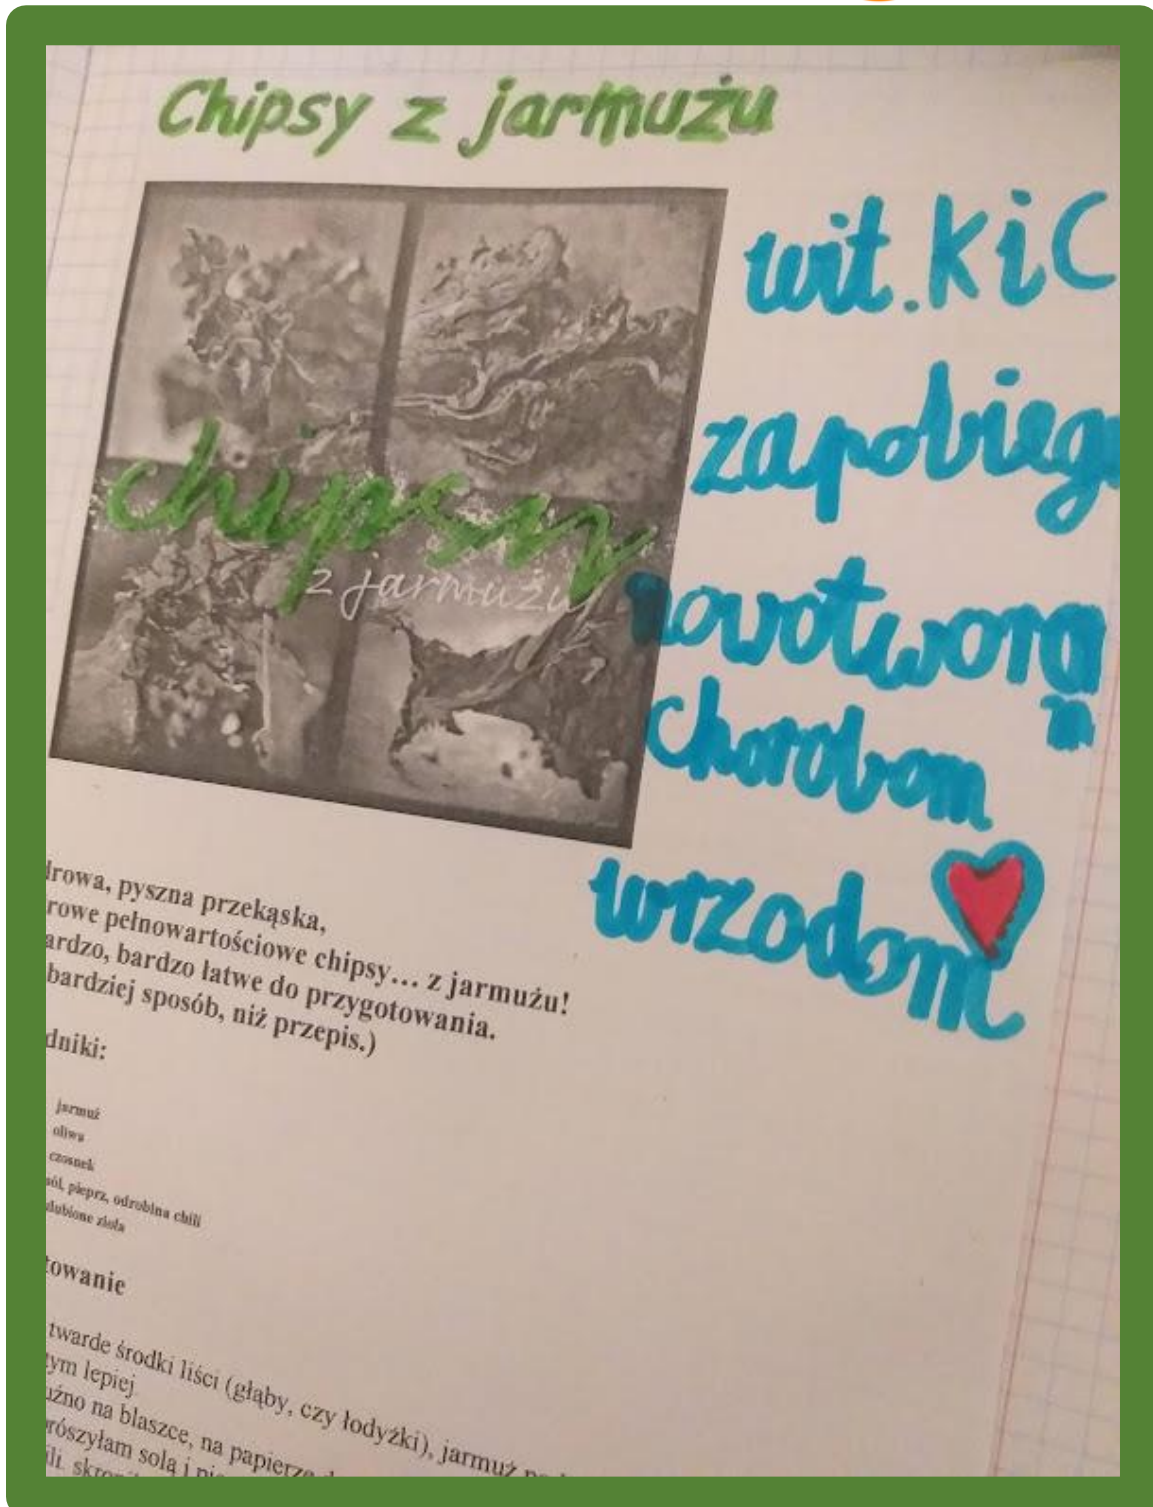 Chipsy z jarmużu
wit. K i C
zapobieg
nowotworą
m
chorobom
wrzodom
chipsy
z jarmużu
drowa, pyszna przekąska,
rowe pełnowartościowe chipsy... z jarmużu!
ardzo, bardzo łatwe do przygotowania.
bardziej sposób, niż przepis.)
dniki:
jarmuż
oliwa
czosnek
sól, pieprz, odrobina chili
ulubione zioła
towanie
twarde środki liści (głąby, czy łodyżki), jarmuż
tym lepiej.
uźno na blaszce, na papierze
prószyłam solą i